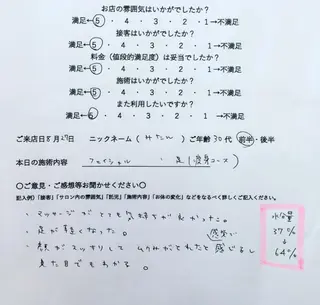 お店の雰囲気はいかがでしたか？
満足←5 ・ 4 ・ 3 ・ 2 ・ 1→不満足
接客はいかがでしたか？
満足←5 ・ 4 ・ 3 ・ 2 ・ 1→不満足
料金（値段的満足度）は妥当でしたか？
満足←5 ・ 4 ・ 3 ・ 2 ・ 1→不満足
施術はいかがでしたか？
満足←5 ・ 4 ・ 3 ・ 2 ・ 1→不満足
また利用したいですか？
満足←5 ・ 4 ・ 3 ・ 2 ・ 1→不満足
ご来店日8月27日 ニックネーム（ ）ご年齢30代 前半・後半
本日の施術内容 フェイシャル ・ 足（痩身コース）
〇ご意見・ご感想等お聞かせください〇
記入例）「接客」「サロン内の雰囲気」「配光」「施術内容」「お体の変化」などをなるべく詳しくご記入ください。
・マッサージがとても気持ちが良かった。
・足が軽くなった。
・顔がスッキリして むくみがとれたと感じるし
見た目でもわかる。
水分量
37%
↓
64%